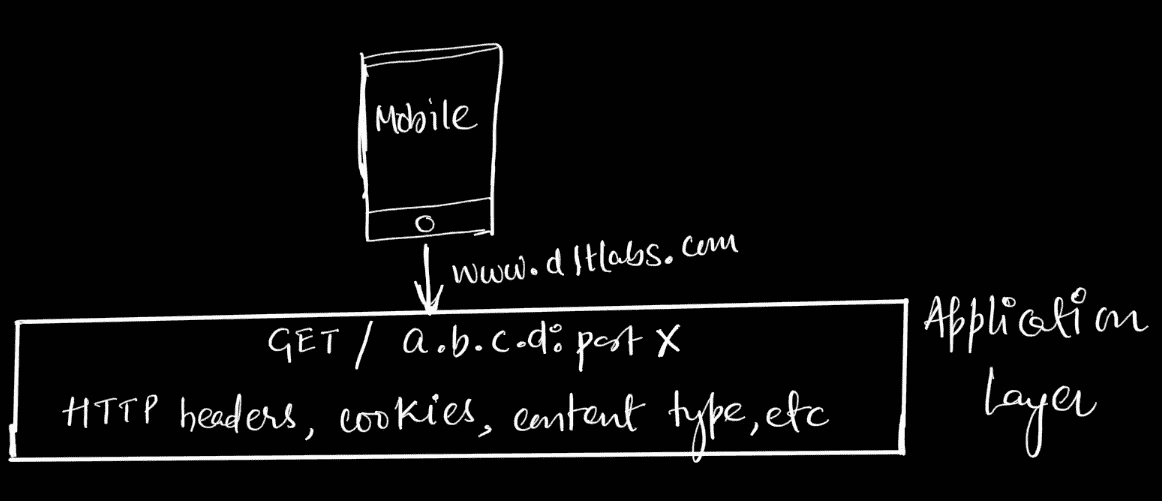 Mobile
www.dltlabs.com
GET / a.b.c.d: port X
HTTP headers, cookies, content type, etc
Application
Layer